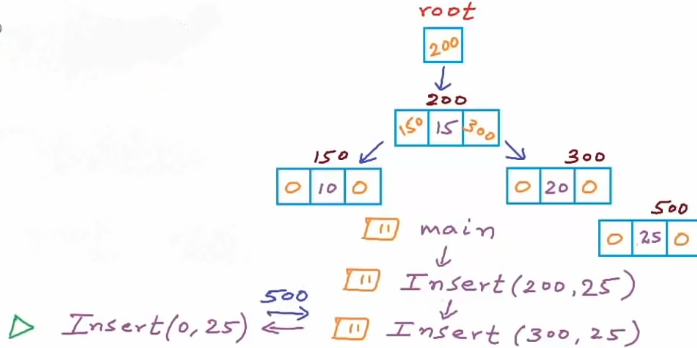 root
200
200
150 15 300
150
0 10 0
300
0 20 0
500
0 25 0
main
Insert(200,25)
500
Insert(0,25)
Insert (300,25)